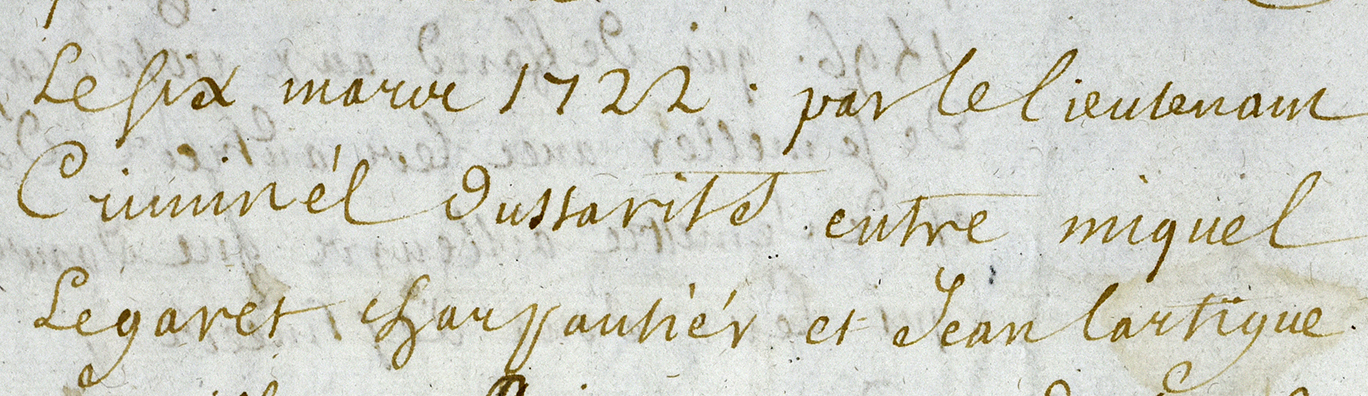 Le six marce 1722. par le lieutenant
Criminél Dussarité entre miquel
Legaret charpantiér et Jean Lartigue